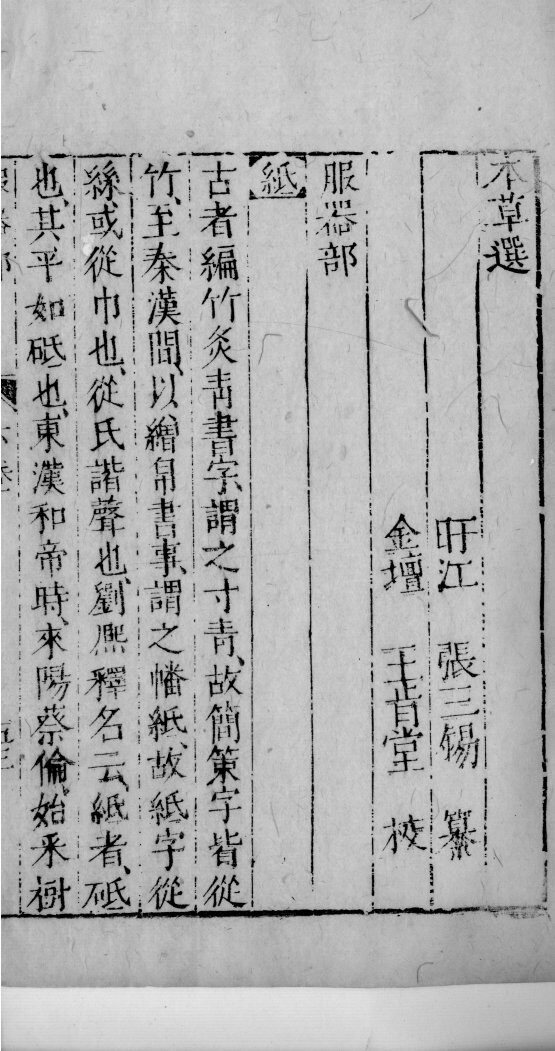 本草選
盱江 張三錫 纂
金壇 王肯堂 校
服器部
紙
古者編竹炙青書字、謂之寸青、故簡策字皆從
竹、至秦漢間、以繒帛書事、謂之幡紙、故紙字從
絲、或從巾也、從氏諧聲也、劉熈釋名云、紙者、砥
也、其平如砥也、東漢和帝時、來陽蔡倫、始采樹
服器部 六卷